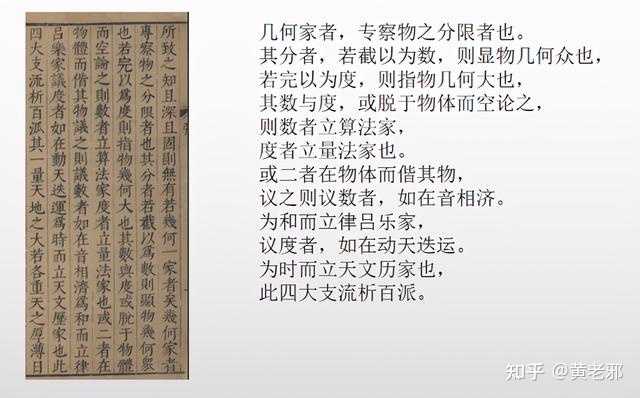 所致之知且深且固則無有若幾何一家者矣幾何家者
專察物之分限者也其分者若截以爲數則顯物幾何眾
也若完以爲度則指物幾何大也其數與度或脫于物體
而空論之則數者立算法家度者立量法家也或二者在
物體而偕其物議之則議數者如在音相濟爲和而立律
呂樂家議度者如在動天迭運爲時而立天文歷家也此
四大支流析百泒其一量天地之大若各重天之厚薄日
几何家者，专察物之分限者也。
其分者，若截以为数，则显物几何众也，
若完以为度，则指物几何大也，
其数与度，或脱于物体而空论之，
则数者立算法家，
度者立量法家也。
或二者在物体而偕其物，
议之则议数者，如在音相济。
为和而立律吕乐家，
议度者，如在动天迭运。
为时而立天文历家也，
此四大支流析百派。
知乎 @黄老邪